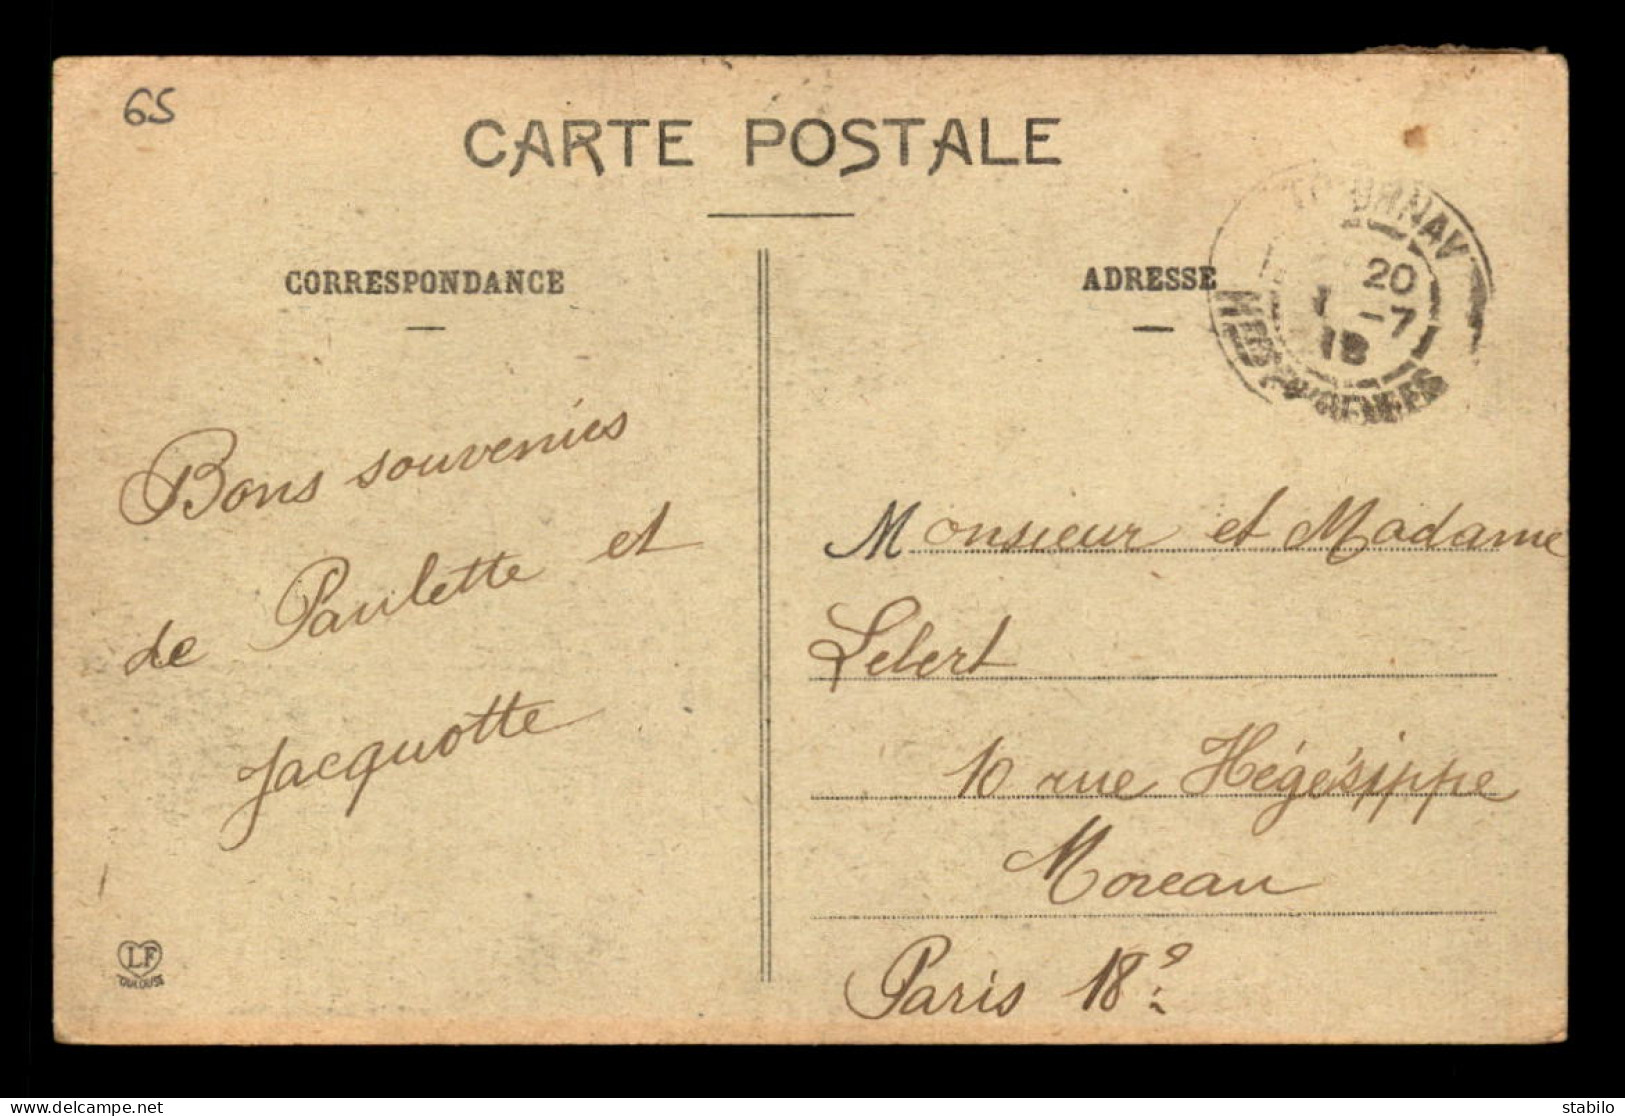 65
CARTE POSTALE
CORRESPONDANCE
ADRESSE
TOURNAY
20
1 -7
18
HTES PYRENEES
Bons souvenirs
de Paulette et
Jacquotte
Monsieur et Madame
Lebert
10 rue Hégésippe
Moreau
Paris 18e
LF
TOULOUSE
delcampe.net
stabilo